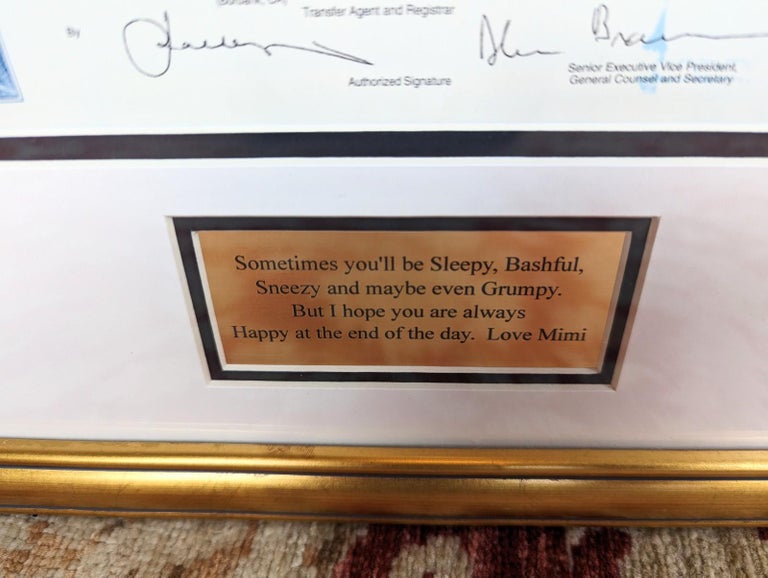 (Burbank, CA)
Transfer Agent and Registrar
By
Authorized Signature
Senior Executive Vice President,
General Counsel and Secretary
Sometimes you'll be Sleepy, Bashful,
Sneezy and maybe even Grumpy.
But I hope you are always
Happy at the end of the day. Love Mimi